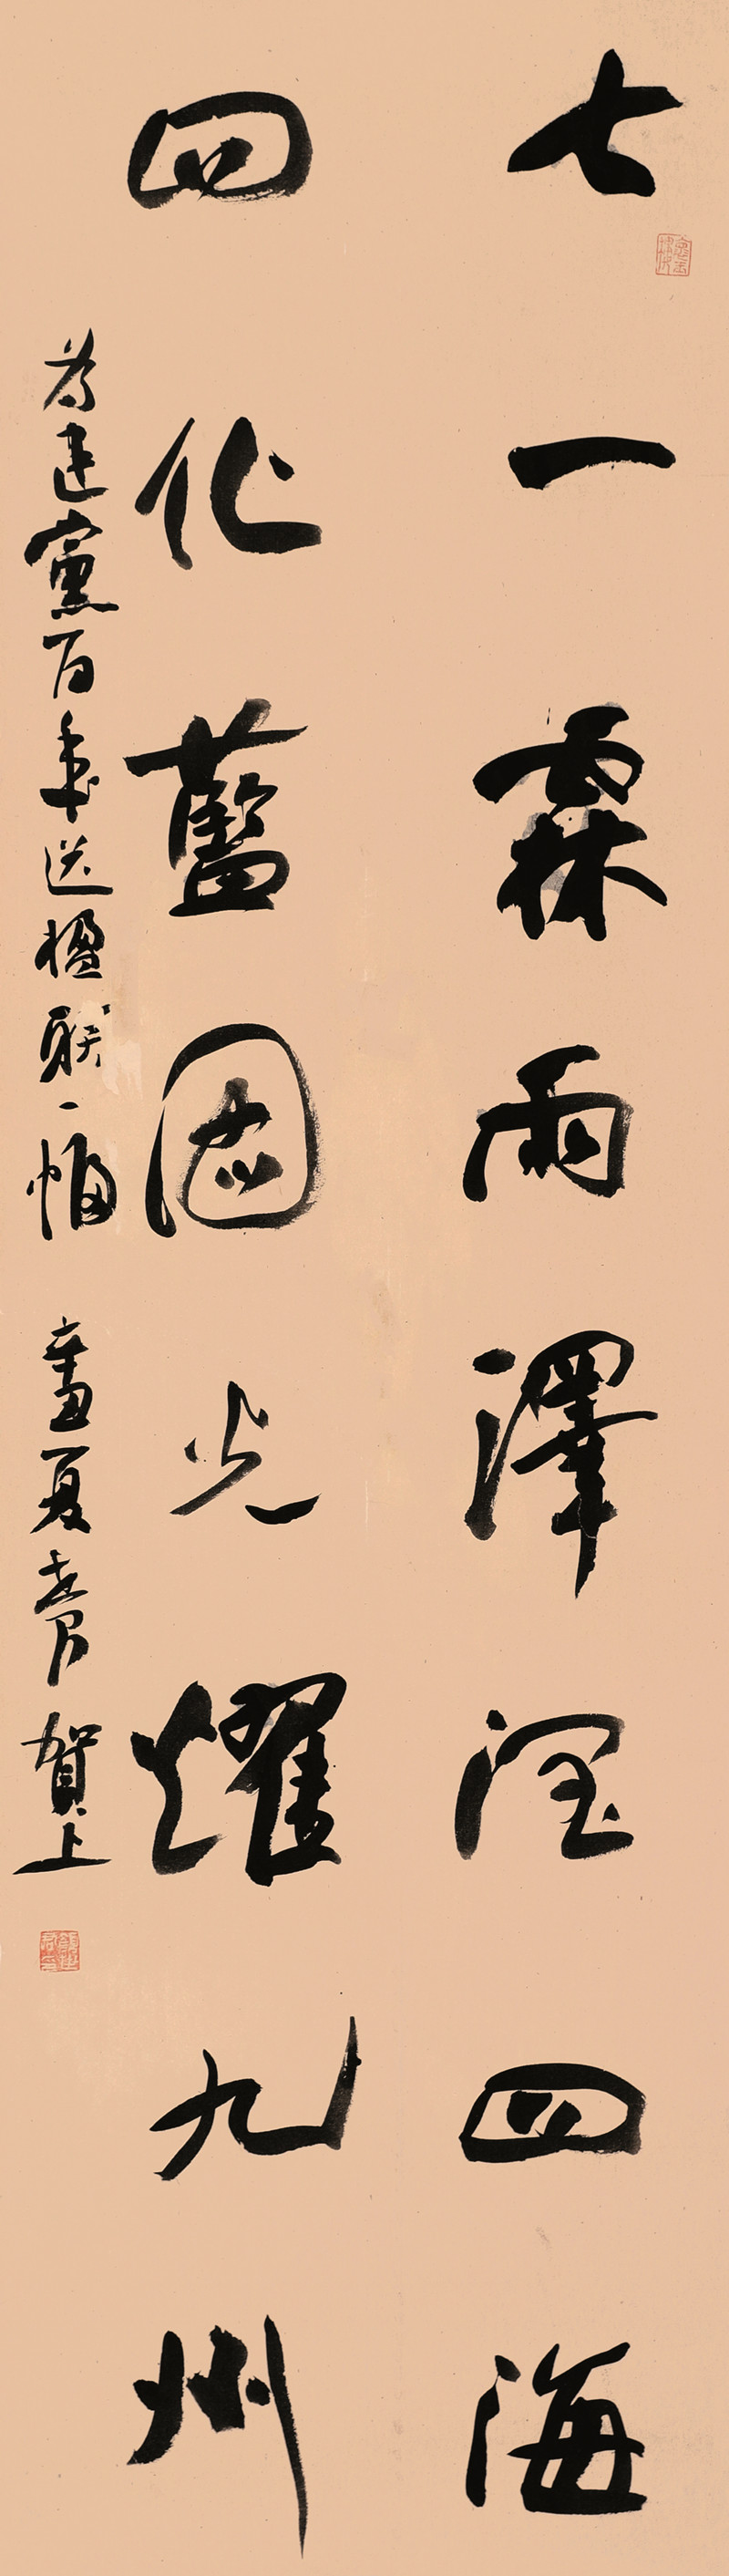 七一霖雨澤潤四海
四化藍圖光耀九州
为建黨百年送楹联一幅
辛丑夏 賀上